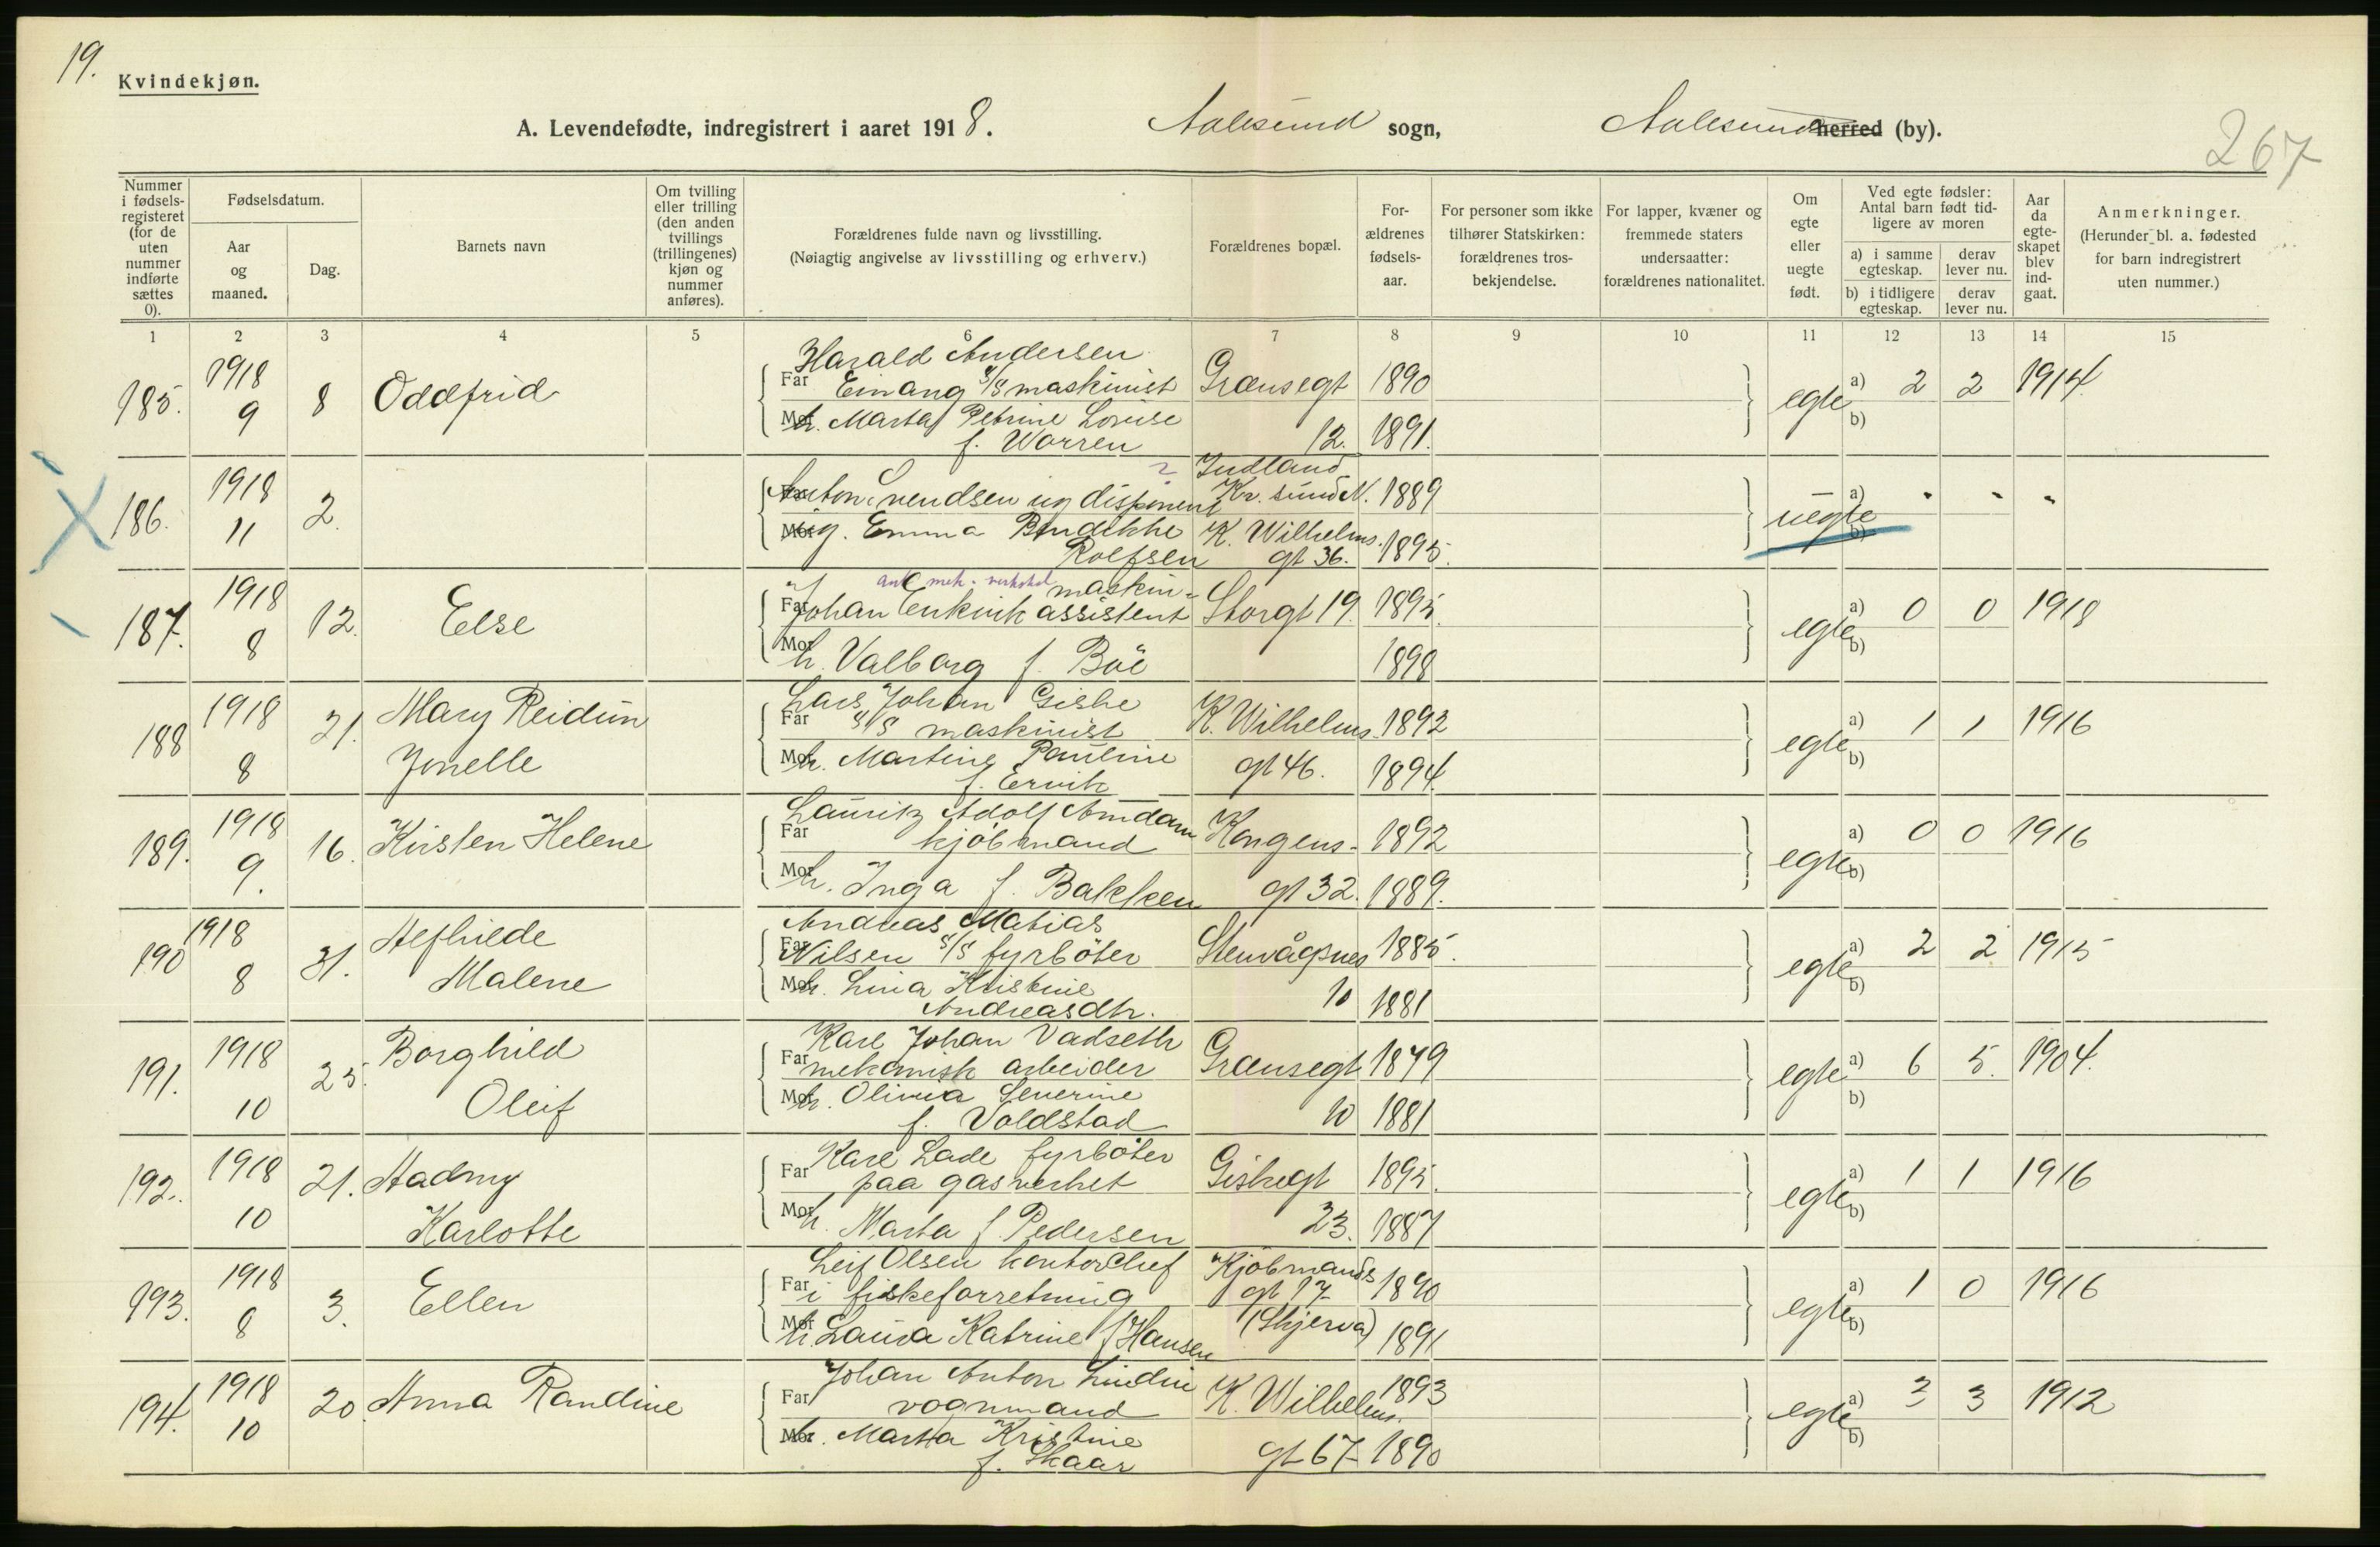 19.
Kvindekjøn.
A. Levendefødte, indregistrert i aaret 1918.
Aalesund sogn,
Aalesund herred (by).
267
Nummer i fødselsregisteret (for de uten nummer indførte sættes 0).
Fødselsdatum.
Aar og maaned.
Dag.
Barnets navn
Om tvilling eller trilling (den anden tvillings (trillingenes) kjøn og nummer anføres).
Forældrenes fulde navn og livsstilling.
(Nøiagtig angivelse av livsstilling og erhverv.)
Forældrenes bopæl.
Forældrenes fødselsaar.
For personer som ikke tilhører Statskirken: forældrenes trosbekjendelse.
For lapper, kvæner og fremmede staters undersaatter: forældrenes nationalitet.
Om egte eller uegte født.
Ved egte fødsler: Antal barn født tidligere av moren
a) i samme egteskap.
derav lever nu.
b) i tidligere egteskap.
derav lever nu.
Aar da egteskapet blev indgaat.
Anmerkninger.
(Herunder bl. a. fødested for barn indregistrert uten nummer.)
1 2 3 4 5 6 7 8 9 10 11 12 13 14 15
185. 1918 9 8 Oddfrid
Harald Andersen
Far Einang s/s maskinist Grænsegt 1890
Mor h. Marta Petrine Lovise
f. Warren 12. 1891.
egte a) 2 2 1914.
b)
186. 1918 11 2.
Indland
Far Anton Svendsen ug disponent Kr. sund N. 1889
Mor ug. Emma Bendikke K. Wilhelms.
Rolfsen gt 36. 1895.
uegte a) - - -
b)
187. 1918 8 12. Else
mek. maskin-
Far Johan Enkvik assistent Storgt 19. 1895.
Mor h. Valborg f. Böe 1898
egte a) 0 0 1918
b)
188 1918 8 21. Mary Reidun
Jonelle
Lars Johan Giske
Far s/s maskinist K. Wilhelms- 1892
Mor h. Martine Pauline
f. Ervik gt 46. 1894.
egte a) 1 1 1916
b)
189. 1918 9. 16. Kirsten Helene
Lauritz Adolf Amdam
Far kjöbmand Kongens- 1892
Mor h. Inga f. Bakken gt 32. 1889.
egte a) 0 0 1916
b)
190 1918 8 31. Alfhilde
Malene
Andreas Matias
Far Nilsen s/s fyrböter Stenvågsnes 1885.
Mor h. Lina Kristine
Andreasdtr. 10 1881
egte a) 2 2 1915
b)
191. 1918 10 25. Borghild
Oleif
Karl Johan Vadseth
Far mekanisk arbeider Grænsegt 1879
Mor h. Olivia Severine
f. Voldstad 10 1881
egte a) 6 5. 1904.
b)
192. 1918 10 21. Aadny
Karlotte
Karl Lade fyrböter
Far paa gasverket Giskegt 1895.
Mor h. Marta f. Pedersen 23. 1887
egte a) 1 1 1916
b)
193. 1918 8 3. Ellen
Leif Olsen kontorchef Kjöbmands
Far i fiskeforretning gt 17 1890
(Skjerva)
Mor h. Laura Katrine f Hansen 1891
egte a) 1 0 1916
b)
194. 1918 10 20. Anna Randine
Johan Anton Lindin
Far vognmand K. Wilhelms. 1893
Mor h. Marta Kristine
f. Skaar gt 67- 1890
egte a) 3 3 1912
b)